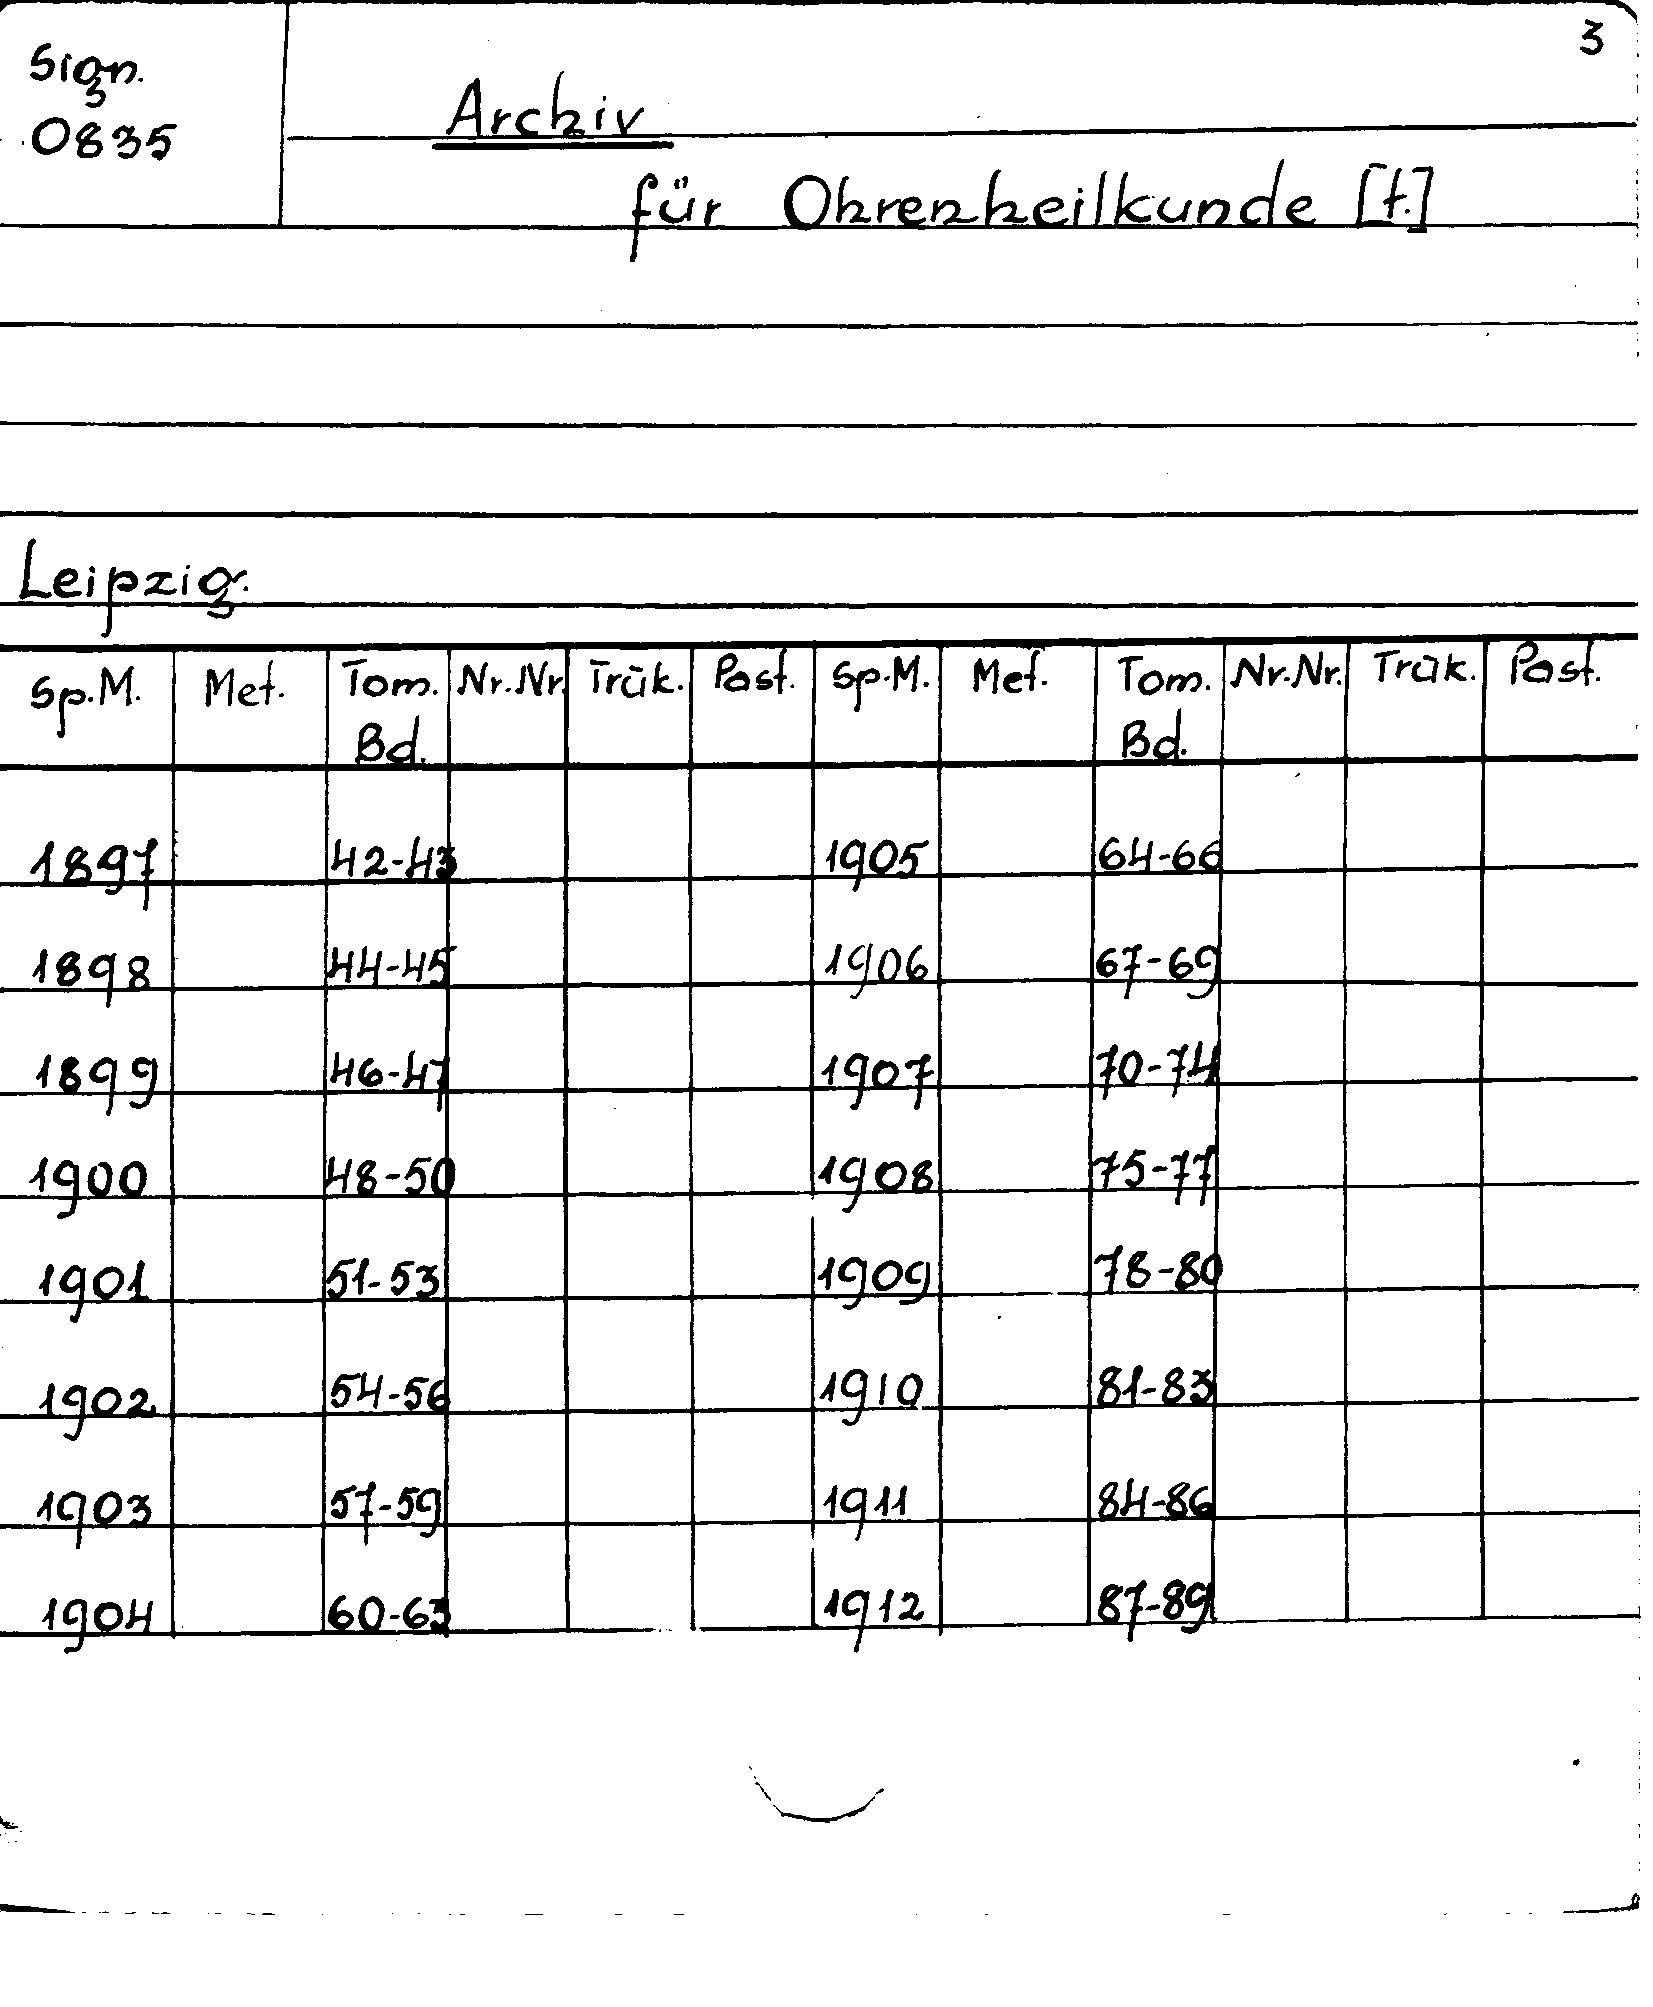 3
Sign.
0835
Archiv
für Ohrenheilkunde [t.]
Leipzig.
Sp.M. Met. Tom. Bd. Nr.Nr. Trūk. Past. Sp.M. Met. Tom. Bd. Nr.Nr. Trūk. Past.
1897 42-43 1905 64-66
1898 44-45 1906 67-69
1899 46-47 1907 70-74
1900 48-50 1908 75-77
1901 51-53 1909 78-80
1902 54-56 1910 81-83
1903 57-59 1911 84-86
1904 60-63 1912 87-89